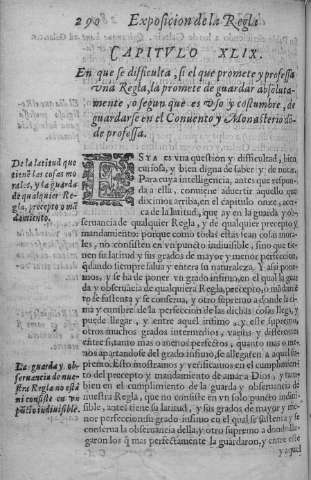 290 Exposicion de la Regla
CAPITVLO XLIX.
En que se difficulta, si el que promete y professa
vna Regla, la promete de guardar absoluta-
mente, o segun que es vso y costumbre, de
guardarse en el Conuento y Monasterio dō-
de professa.
De la latitud que
tienē las cosas mo-
rales, y la guarda
de qualquier Re-
gla, precepto o mā-
damiento.
ESTA es vna question y difficultad, bien
curiosa, y bien digna de saber y de notar.
Para cuya inteligencia, antes que respon-
da a ella, conuiene aduertir aquello que
diximos arriba, en el capitulo onze, acer-
ca de la latitud, que ay en la guarda y ob-
seruancia de qualquier Regla, y de qualquier precepto
o mandamiento: porque como todas estas sean cosas mora-
les, no consisten en vn punto indiuisible, sino que tie-
nen su latitud y sus grados de mayor y menor perfeccion,
quedando siempre salua y entera su naturaleza. Y assi pon-
mos, y se ha de poner vn grado infimo, en el qual la guar
da y obseruancia de qualquiera Regla, precepto, o mādamiē
to se sustenta y se conserua, y otro supremo a donde la su-
ma y cumbre de la perfeccion de las dichas cosas llega, y
puede llegar, y entre aquel infimo, y este supremo,
otros muchos grados intermedios, varios y differentes
entre si, tanto mas o menos perfectos, quanto mas o me-
nos apartandose del grado infimo, se allegaren a aquel su-
premo. Esto mostramos y verificamos en el cumplimien-
to del precepto y mandamiento de amar a Dios, y tam-
bien en el cumplimiento de la guarda y obseruancia de
nuestra Regla, que no consiste en vn solo puncto indiui-
sible, antes tiene su latitud, y sus grados de mayor y me-
nor perfeccion: su grado infimo en el qual se sustenta y se
conserua la guarda y obseruancia della, y otro supremo a donde lle-
garon los que mas perfectamente la guardaron, y entre este
La guarda y ob-
seruancia de nue-
stra Regla no está
ni consiste en vn
pūcto indiuisible.
y aquel